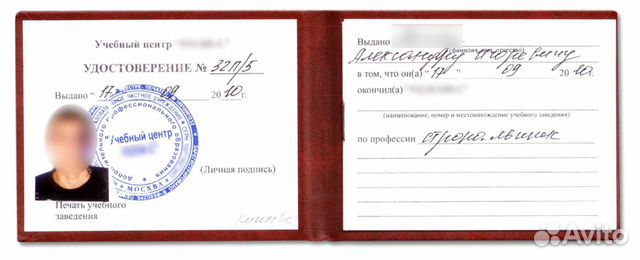 Учебный центр
УДОСТОВЕРЕНИЕ № 32П/5
Выдано " 17 " 09 2010 г.
"Учебный центр
МОСКВА
(Личная подпись)
Печать учебного
заведения
Выдано
Александру Игоревичу
(фамилия, имя, отчество)
в том, что он(а) " 17 " 09 2010 г.
окончил(а)
(наименование, номер и местонахождение учебного заведения)
по профессии стропальщик
Avito